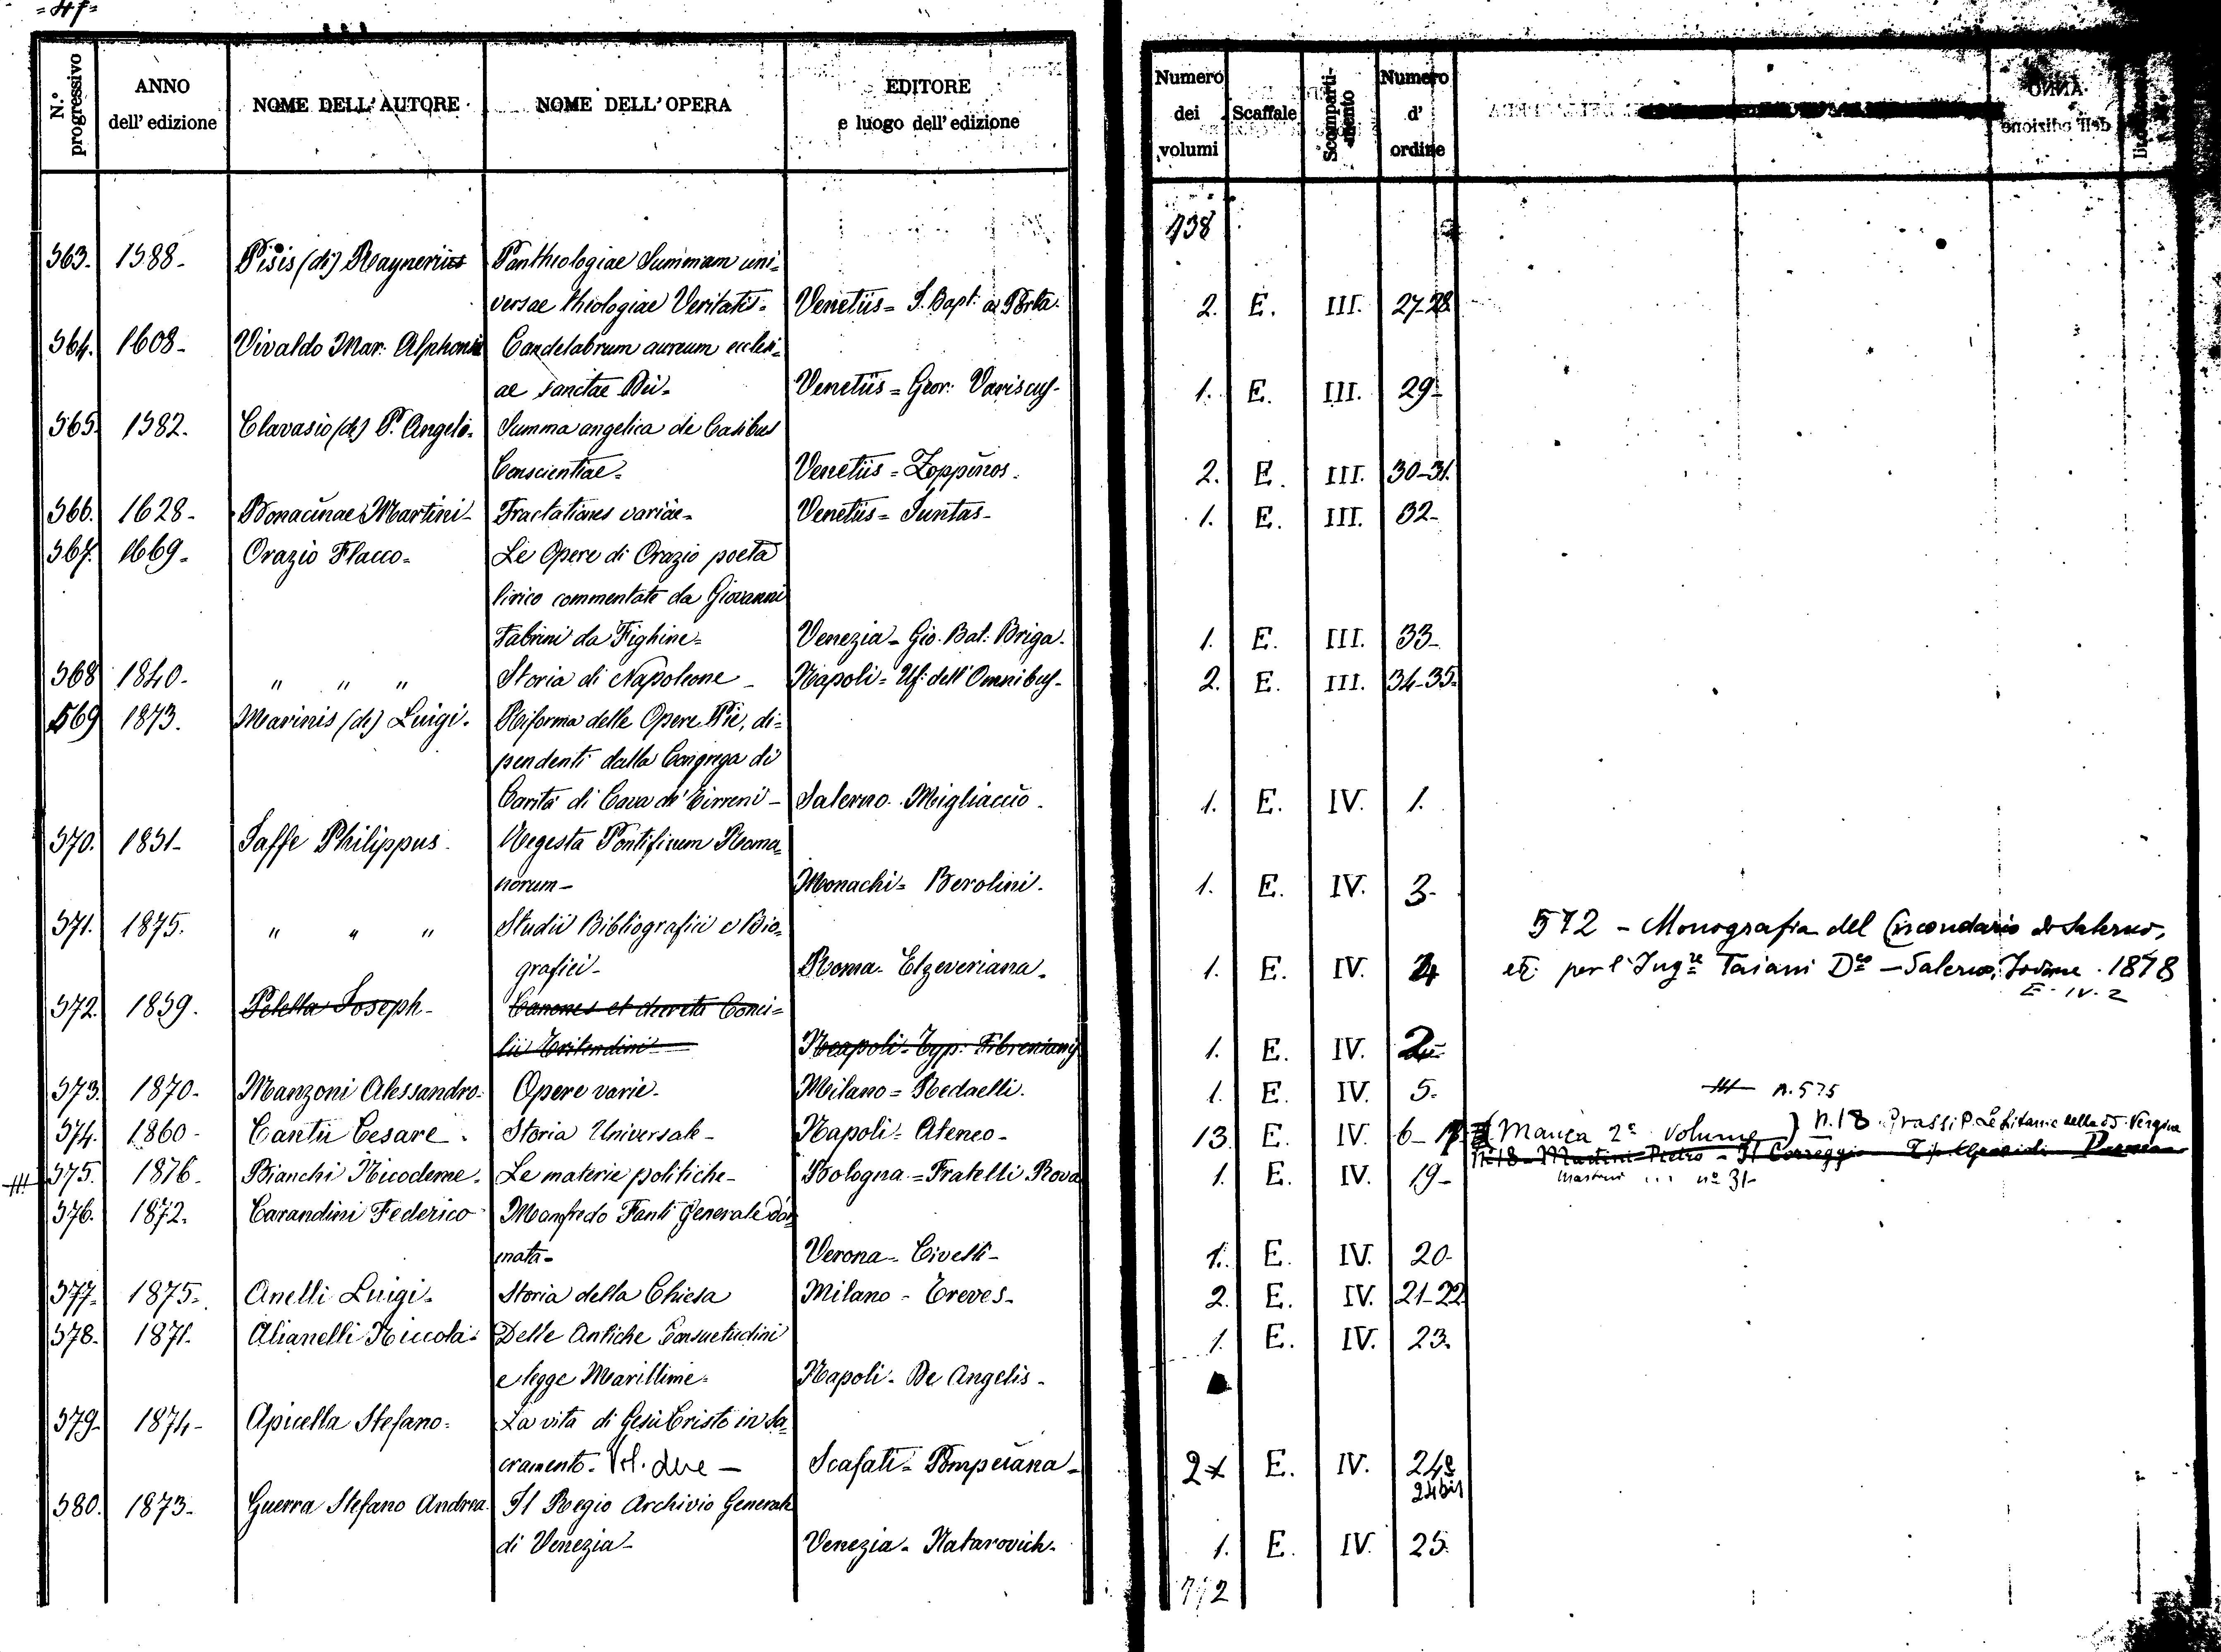 =47=
N.° progressivo
ANNO dell' edizione
NOME DELL' AUTORE
NOME DELL' OPERA
EDITORE e luogo dell' edizione
Numero dei volumi
Scaffale
Scomparti-mento
Numero d' ordine
563. 1588. Pisis (di) Raynerius Pantheologiae Summam uni=
versae theologiae Veritatis= Venetiis= I. Bapt. a Porta. 2. E. III. 27-28
564. 1608- Vivaldo Mar: Alphonsi Candelabrum aureum ecclesi=
ae sanctae Dei- Venetiis= Geor: Variscus- 1. E. III. 29-
565. 1582. Clavasio (de) P. Angelo- Summa angelica de Casibus
Conscientiae= Venetiis= Zoppinos. 2. E. III. 30-31.
566. 1628- Bonacinae Martini- Tractationes variae- Venetiis= Iuntas- 1. E. III. 32-
567. 1669- Orazio Flacco= Le Opere di Orazio poeta
lirico commentate da Giovanni
Fabrini da Fighine= Venezia- Gio. Bat: Briga. 1. E. III. 33-
568 1840- " " " Storia di Napoleone - Napoli= Uf: dell' Omnibus- 2. E. III. 34-35-
569 1873. Marinis (de) Luigi. Riforma delle Opere Pie, di=
pendenti dalla Congrega di
Carità di Cava de' Tirreni- Salerno. Migliaccio. 1. E. IV. 1.
570. 1851- Jaffe Philippus. Regesta Pontificum Roma=
norum- Monachi= Berolini. 1. E. IV. 3-
571. 1875. " " " Studii Bibliografici e Bio=
grafici- Roma- Elzeveriana- 1. E. IV. 4
572 - Monografia del Circondario di Salerno,
etc. per l'Ing.re Taiani D.co - Salerno, Jovane. 1878
E. IV. 2
572. 1859. Pelella Joseph- Canones et decreta Conci=
lii Tritendini Neapoli- Typ: Fibreniany 1. E. IV. 2
573. 1870- Manzoni Alessandro- Opere varie- Milano= Redaelli. 1. E. IV. 5-
n. 575
574. 1860- Cantù Cesare. Storia Universale- Napoli= Ateneo- 13. E. IV. 6-17 (Manca 2° volume) n. 18 Grassi P. Le Litanie della SS. Vergine
575. 1876- Bianchi Nicodeme. Le materie politiche- Bologna.= Fratelli Rova 1. E. IV. 19-
N. 18 - Martini Pietro - Il Correggio
Martini ... n° 31-
576. 1872. Carandini Federico Manfredo Fanti Generale d'ar=
mata- Verona- Civelli- 1. E. IV. 20-
577- 1875- Anelli Luigi- Storia della Chiesa Milano - Treves- 2. E. IV. 21-22
578- 1871- Alianelli Niccola- Delle Antiche Consuetudini 1. E. IV. 23.
e legge Marittime- Napoli- De Angelis-
579- 1874- Apicella Stefano- La vita di Gesù Cristo in sa=
cramento. Vol. due - Scafati= Pompeiana- 2 E. IV. 24 e
24 bis
580. 1873- Guerra Stefano Andrea. Il Regio Archivio Generale
di Venezia- Venezia- Natarovich- 1. E. IV. 25.